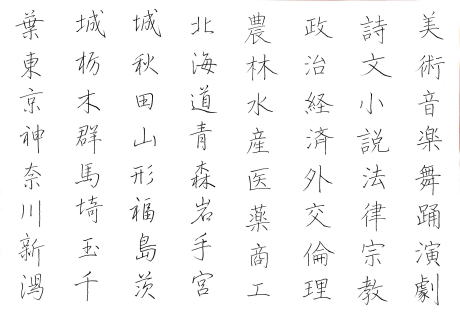 美術音楽舞踊演劇
詩文小説法律宗教
政治経済外交倫理
農林水産医薬商工
北海道青森岩手宮
城秋田山形福島茨
城栃木群馬埼玉千
葉東京神奈川新潟